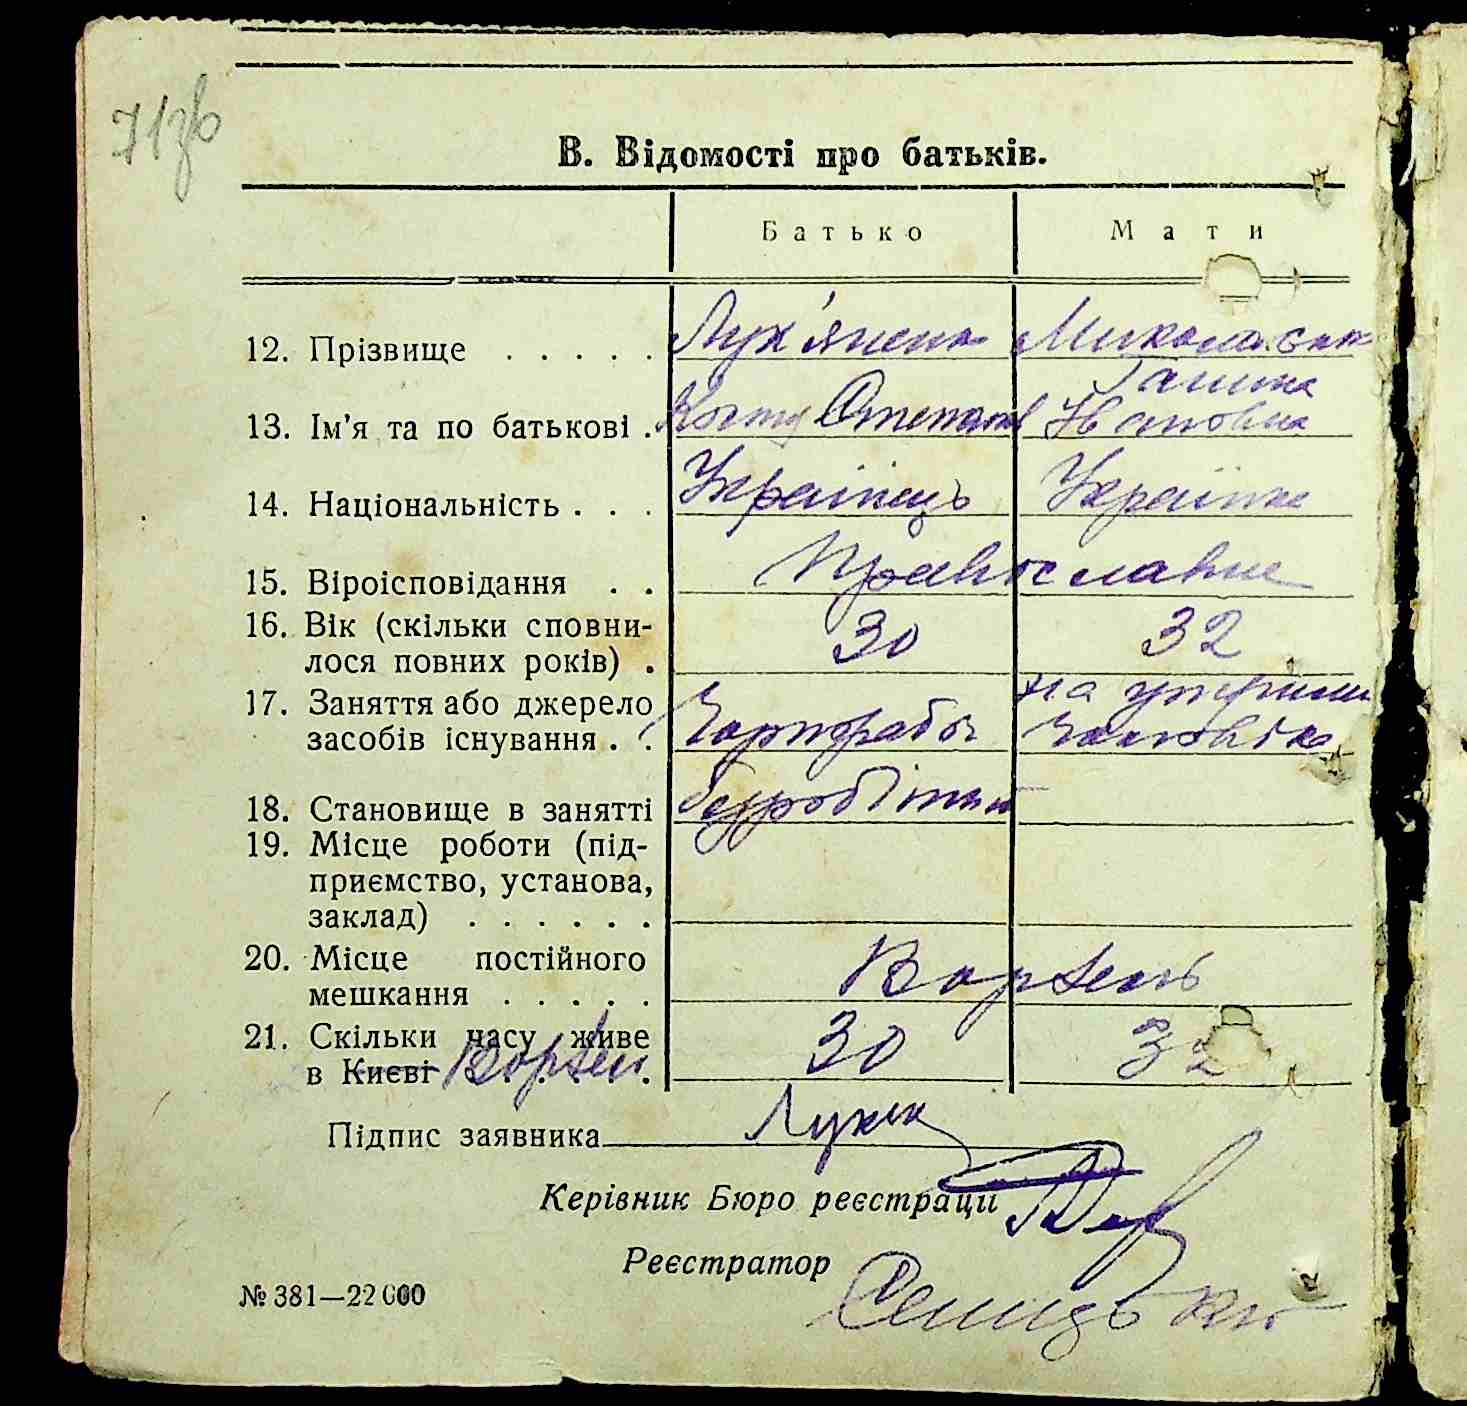 71зв
В. Відомості про батьків.
Батько Мати
12. Прізвище . . . . . Лук'яненко Миколаєнко
Галина
13. Ім'я та по батькові . Степанов Івановна
14. Національність . . . Українець Українка
15. Віроісповідання . . Православне
16. Вік (скільки сповни-
лося повних років) . 30 32
17. Заняття або джерело на утриман
засобів існування . . Чорнороб Чоловіка
18. Становище в занятті безробітний
19. Місце роботи (під-
приємство, установа,
заклад) . . . . . .
20. Місце постійного
мешкання . . . . . Ворзель
21. Скільки часу живе
в Києві Ворзел 30 32
Підпис заявника
Керівник Бюро реєстрації
Реєстратор
№ 381—22 000